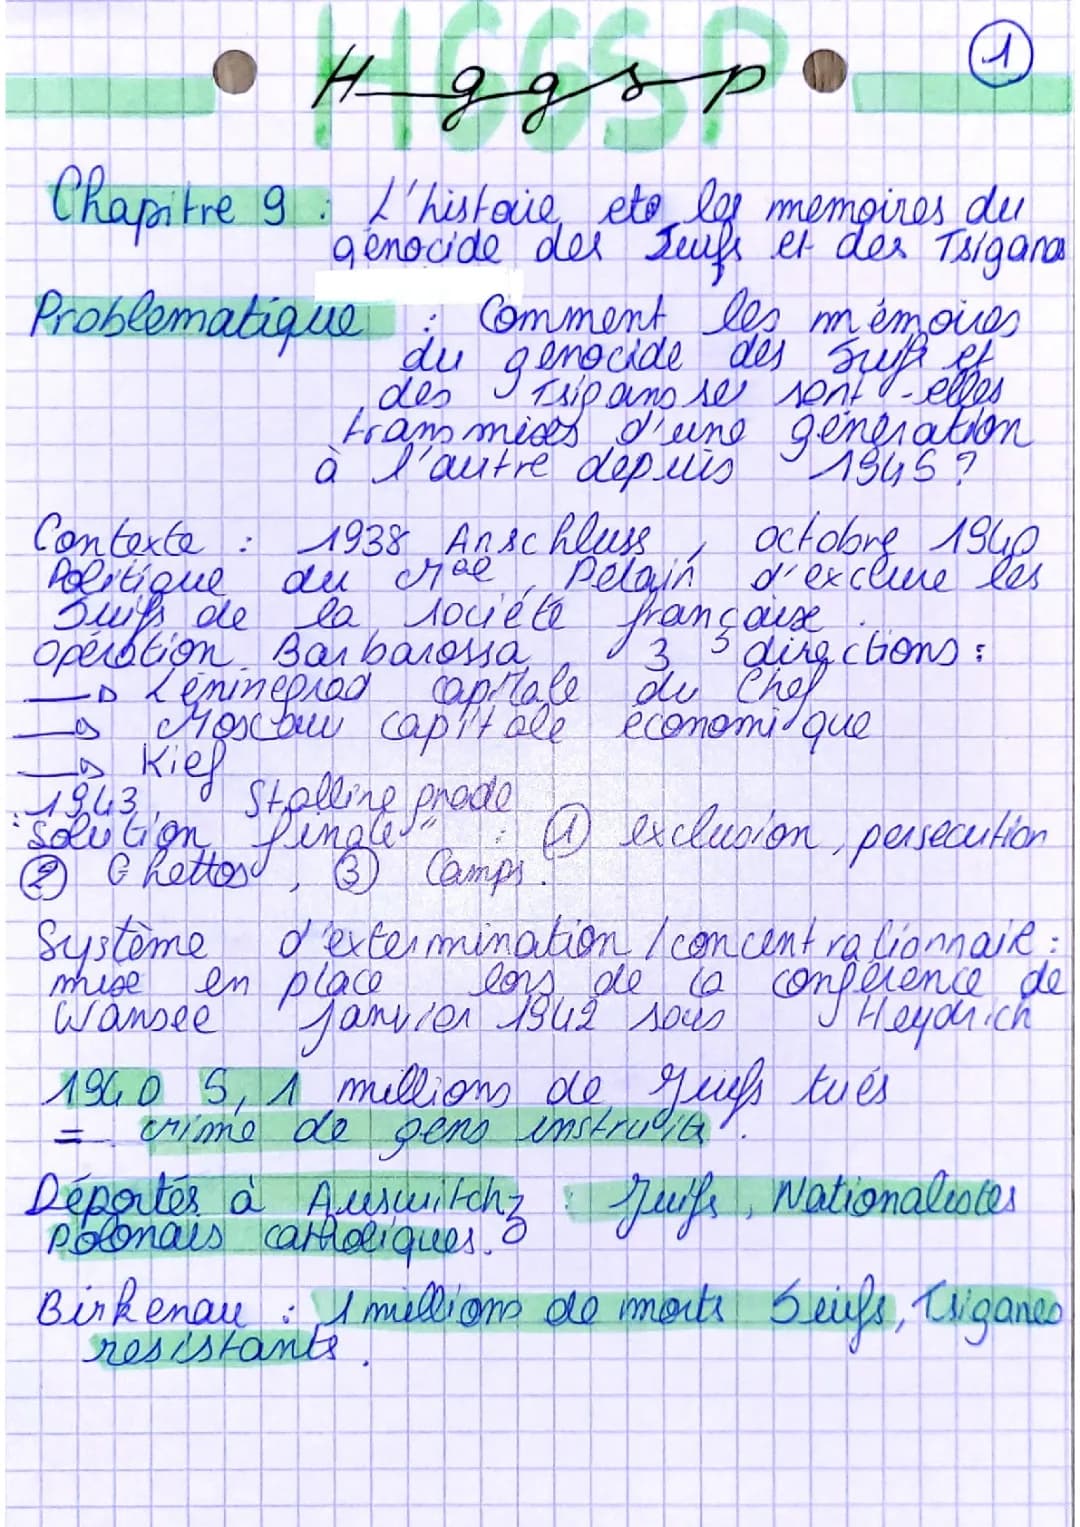 HGGSP
Hggsp
1
Chapitre 9 : L'histoire et les memoires du
génocide des Juifs et des Tsiganes
Problematique : Comment les mémoires
du génocide des Juifs et
des Tsiganes se sont-elles
transmises d'une génération
à l'autre depuis 1945 ?
Contexte : 1938 Anschluss, octobre 1940
Politique du Mal Pétain d'exclure les
Juifs de la société française.
Opération Barbarossa 3 directions :
→ Léninegrad capitale du Chef
→ Moscou capitale économique
→ Kief
1943 Stalline grade
"Solution finale" : ① exclusion, persécution
② Ghettos, ③ Camps.
Système d'extermination / concentrationnaire :
mise en place lors de la conférence de
Wansee janvier 1942 sous Heydrich
1940 5,1 millions de Juifs tués
= crime de gens instruits.
Déportés à Auswitchz : Juifs, Nationalistes
polonais catholiques.
Birkenau : 1 millions de morts Juifs, Tsiganes
resistants.